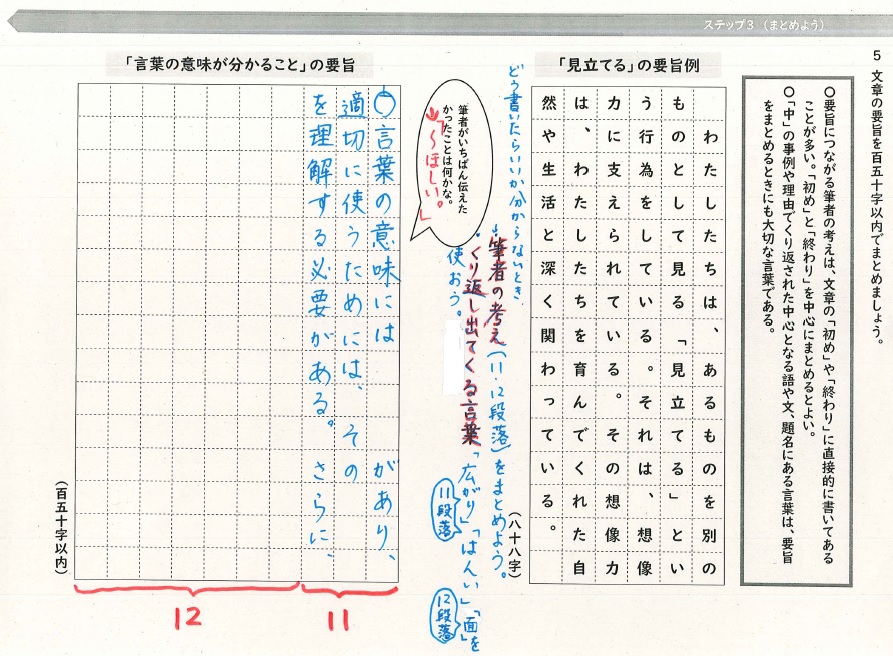 ステップ3（まとめよう）
5 文章の要旨を百五十字以内でまとめましょう。
○要旨につながる筆者の考えは、文章の「初め」や「終わり」に直接的に書いてある
ことが多い。「初め」と「終わり」を中心にまとめるとよい。
○「中」の事例や理由でくり返された中心となる語や文、題名にある言葉は、要旨
をまとめるときにも大切な言葉である。
「見立てる」の要旨例
わたしたちは、あるものを別の
ものとして見る「見立てる」とい
う行為をしている。それは、想像
力に支えられている。その想像力
は、わたしたちを育んでくれた自
然や生活と深く関わっている。
（八十八字）
どう書いたらいいか分からないとき、
・筆者の考え（11・12段落）をまとめよう。
・くり返し出てくる言葉「広がり」「はんい」「面を
使おう。
11段落
12段落
筆者がいちばん伝えた
かったことは何かな。
↓「〜ほしい。」
「言葉の意味が分かること」の要旨
言葉の意味には　があり、
適切に使うためには、その
を理解する必要がある。さらに、
（百五十字以内）
11
12